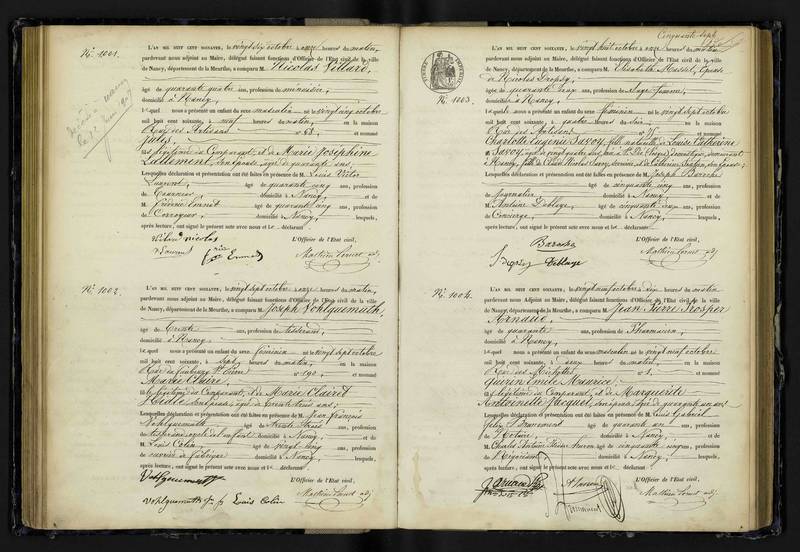 N.° 1001.
L'AN MIL HUIT CENT SOIXANTE, le vingt six octobre à onze heures du matin,
pardevant nous Adjoint au Maire, délégué faisant fonctions d'Officier de l'Etat civil de la ville
de Nancy, département de la Meurthe, a comparu M. Nicolas Villard,
âgé de quarante quatre ans, profession de menuisier,
domicilié à Nancy,
lequel nous a présenté un enfant du sexe masculin né le vingt cinq octobre
mil huit cent soixante, à neuf heures du matin, en la maison
Rue des Artisans n° 58, et nommé
Jules,
fils légitime du Comparant, et de Marie Joséphine
Lallement, son épouse, âgée de quarante ans;
Lesquelles déclaration et présentation ont été faites en présence de M. Louis Victor
Laurent, âgé de quarante cinq ans, profession
de domicilié à Nancy, et de
M. Frédéric âgé de quarante cinq ans, profession
de Corroyeur, domicilié à Nancy, lesquels,
après lecture, ont signé le présent acte avec nous et le déclarant
nicolas L'Officier de l'Etat civil,
Laurent Mathieu adj.
N.° 1002.
L'AN MIL HUIT CENT SOIXANTE, le vingt sept octobre à onze heures du matin,
pardevant nous Adjoint au Maire, délégué faisant fonctions d'Officier de l'Etat civil de la ville
de Nancy, département de la Meurthe, a comparu M. Joseph Vohlguemuth,
âgé de trente ans, profession de tisserand,
domicilié à Nancy,
lequel nous a présenté un enfant du sexe féminin né le vingt sept octobre
mil huit cent soixante, à sept heures du matin, en la maison
Rue du faubourg St Pierre n° 190, et nommé
Marie Claire,
fille légitime du Comparant, et de Marie Clairet
son épouse, âgée de trente trois ans;
Lesquelles déclaration et présentation ont été faites en présence de M. Jean François
Vohlguemuth âgé de trente trois ans, profession
de tisserand, oncle de l'enfant, domicilié à Nancy, et de
M. Louis Colin, âgé de vingt cinq ans, profession
de ouvrier de fabrique domicilié à Nancy, lesquels,
après lecture, ont signé le présent acte avec nous et le déclarant
Vohlguemuth L'Officier de l'Etat civil,
Vohlguemuth Louis Colin Mathieu adj.
Cinquante sept
N.° 1003.
L'AN MIL HUIT CENT SOIXANTE, le vingt huit octobre à onze heures du matin
pardevant nous Adjoint au Maire, délégué faisant fonctions d'Officier de l'Etat civil de la ville
de Nancy, département de la Meurthe, a comparu M. Elisabeth Massel, épouse
de Nicolas Dropsy,
âgée de quarante deux ans, profession de Sage femme,
domiciliée à Nancy,
laquelle nous a présenté un enfant du sexe féminin né le vingt sept octobre
mil huit cent soixante, à quatre heures du soir, en la maison
Rue des Artisans n° et nommé
Charlotte Eugénie Savoy, fille naturelle de Louise Catherine
Savoy, âgée de vingt quatre ans, domestique, demeurant
à Nancy, fille de Nicolas Savoy, et de Catherine son épouse;
Lesquelles déclaration et présentation ont été faites en présence de M. Joseph Baroche
âgé de cinquante cinq ans, profession
de Journalier, domicilié à Nancy, et de
M. Antoine Deblaye, âgé de cinquante cinq ans, profession
de Concierge, domicilié à Nancy, lesquels,
après lecture, ont signé le présent acte avec nous et la déclarante
Baroche L'Officier de l'Etat civil,
Deblaye Mathieu adj.
N.° 1004.
L'AN MIL HUIT CENT SOIXANTE, le vingt neuf octobre à dix heures du matin
pardevant nous Adjoint au Maire, délégué faisant fonctions d'Officier de l'Etat civil de la ville
de Nancy, département de la Meurthe, a comparu M. Jean Pierre Prosper
Arnauld,
âgé de quarante ans, profession de Pharmacien,
domicilié à Nancy,
lequel nous a présenté un enfant du sexe masculin né le vingt neuf octobre
mil huit cent soixante, à deux heures du matin, en la maison
Rue des Michottes n° 1, et nommé
Quirin Emile Maurice,
fils légitime du Comparant, et de Marguerite
Antoinette son épouse, âgée de quarante un ans;
Lesquelles déclaration et présentation ont été faites en présence de M. Louis Gabriel
âgé de quarante un ans, profession
de Notaire, domicilié à Nancy, et de
M. Charles Antoine âgé de cinquante cinq ans, profession
de Négociant, domicilié à Nancy, lesquels,
après lecture, ont signé le présent acte avec nous et le déclarant
L'Officier de l'Etat civil,
Mathieu adj.